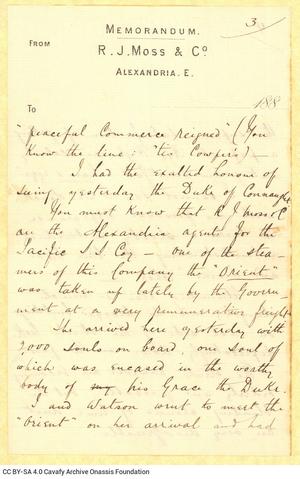 3
MEMORANDUM.
FROM
R. J. MOSS & Co.
ALEXANDRIA. E.
To
188
"peaceful Commerce reigned" (You
know the line: 'tis Cowper's) —
I had the exalted honour of
seeing yesterday the Duke of Connaught
You must know that R J Moss & C
are the Alexandria agent for the
Pacific S S Coy — one of the stea-
mers of this Company the "Orient"
was taken up lately by the Govern-
ment at a very remunerative freight
She arrived here yesterday with
2,000 souls on board, one soul of
which was encased in the worthy
body of my his Grace the Duke.
I and Watson went to meet the
"Orient" on her arrival and had
CC BY-SA 4.0 Cavafy Archive Onassis Foundation